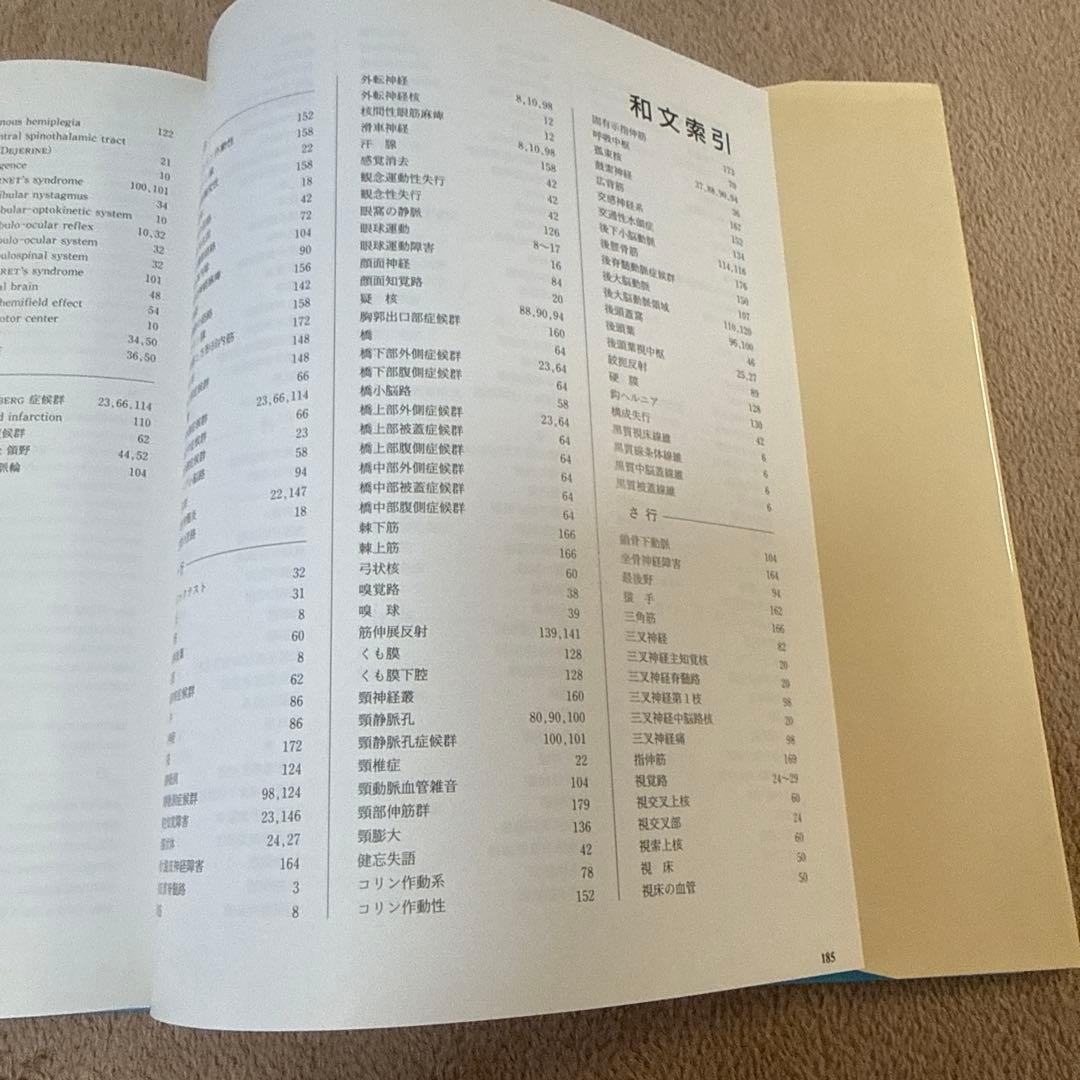 nous hemiplegia 122
ntral spinothalamic tract
(DEJERINE) 21
gence 10
RNET's syndrome 100,101
ibular nystagmus 34
bular-optokinetic system 10
bulo-ocular reflex 10,32
oulo-ocular system 32
ulospinal system 32
RET's syndrome 101
al brain 48
hemifield effect 54
otor center 10
34,50
36,50
BERG 症候群 23,66,114
d infarction 110
候群 62
領野 44,52
脈輪 104
和文索引
作動性 152
158
22
158
18
42
72
104
90
156
142
158
172
内筋 148
148
66
候群 23,66,114
66
23
58
小脳路 94
22,147
18
行
テスト 32
31
8
60
8
62
症候群 86
86
172
124
症候群 98,124
障害 23,146
24,27
神経障害 164
脊髄路 3
8
外転神経 8,10,98
外転神経核 12
核間性眼筋麻痺 12
滑車神経 8,10,98
汗 腺 158
感覚消去 42
観念運動性失行 42
観念性失行 42
眼窩の静脈 126
眼球運動 8〜17
眼球運動障害 16
顔面神経 84
顔面知覚路 20
疑 核 88,90,94
胸郭出口部症候群 160
橋 64
橋下部外側症候群 23,64
橋下部腹側症候群 64
橋小脳路 58
橋上部外側症候群 23,64
橋上部被蓋症候群 64
橋上部腹側症候群 64
橋中部外側症候群 64
橋中部被蓋症候群 64
橋中部腹側症候群 64
棘下筋 166
棘上筋 166
弓状核 60
嗅覚路 38
嗅 球 39
筋伸展反射 139,141
くも膜 128
くも膜下腔 128
頸神経叢 160
頸静脈孔 80,90,100
頸静脈孔症候群 100,101
頸椎症 22
頸動脈血管雑音 104
頸部伸筋群 179
頸膨大 136
健忘失語 42
コリン作動系 78
コリン作動性 152
固有示指伸筋 173
呼吸中枢 70
孤束核 37,88,90,94
鼓索神経 36
広背筋 167
交感神経系 152
交通性水頭症 134
後下小脳動脈 114,116
後脛骨筋 176
後脊髄動脈症候群 150
後大脳動脈 107
後大脳動脈領域 110,120
後頭蓋窩 96,100
後頭葉 46
後頭葉視中枢 25,27
絞扼反射 89
硬 膜 128
鈎ヘルニア 130
構成失行 42
黒質視床線維 6
黒質線条体線維 6
黒質中脳蓋線維 6
黒質被蓋線維 6
さ 行
鎖骨下動脈 104
坐骨神経障害 164
最後野 94
猿 手 162
三角筋 166
三叉神経 82
三叉神経主知覚核 20
三叉神経脊髄路 20
三叉神経第1枝 98
三叉神経中脳路核 20
三叉神経痛 98
指伸筋 169
視覚路 24〜29
視交叉上核 60
視交叉部 24
視索上核 60
視 床 50
視床の血管 50
185